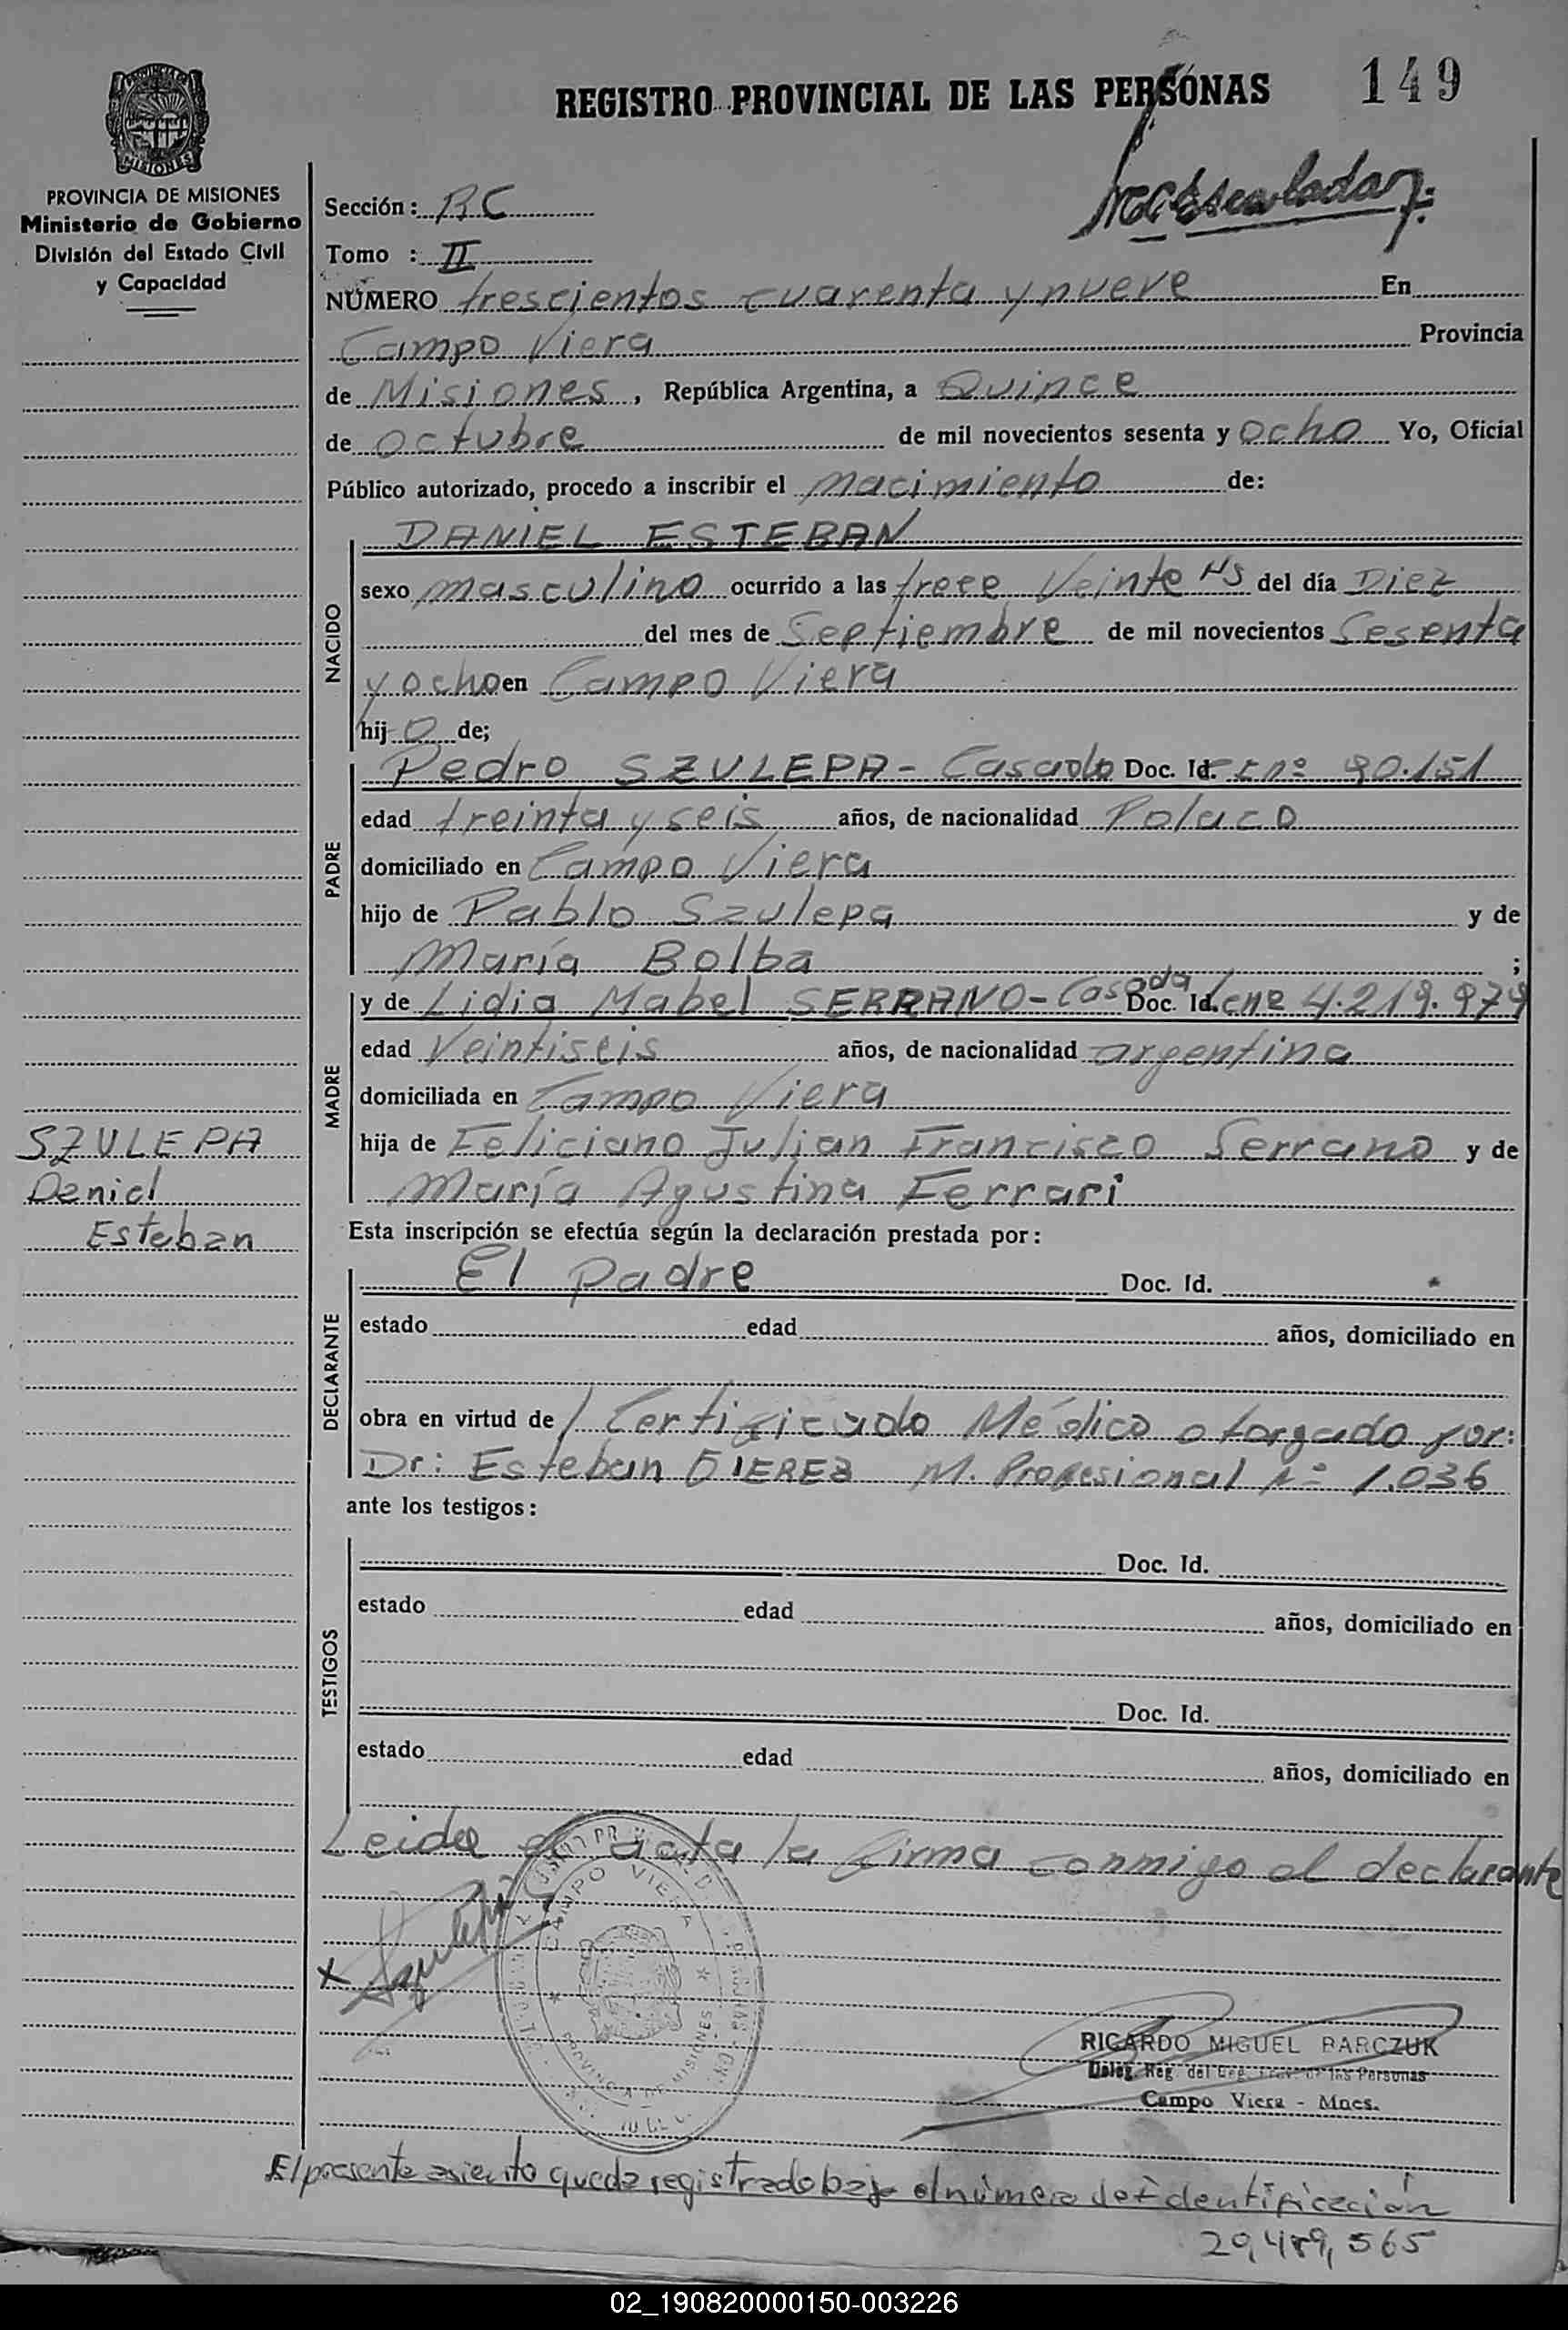 REGISTRO PROVINCIAL DE LAS PERSONAS 149
MISIONES
PROVINCIA DE MISIONES
Ministerio de Gobierno
División del Estado Civil
y Capacidad
Sección: BC
Tomo : II
NÚMERO trescientos cuarenta y nueve En
Campo Viera Provincia
de Misiones, República Argentina, a Quince
de octubre de mil novecientos sesenta y ocho Yo, Oficial
Público autorizado, procedo a inscribir el nacimiento de:
NACIDO
DANIEL ESTEBAN
sexo masculino ocurrido a las trece Veinte Hs del día Diez
del mes de Septiembre de mil novecientos Sesenta
y ocho en Campo Viera
hijo de;
PADRE
Pedro SZULEPA - Casado Doc. Id. nº 90.151
edad treinta y seis años, de nacionalidad Polaco
domiciliado en Campo Viera
hijo de Pablo Szulepa y de
María Bolba ;
MADRE
y de Lidia Mabel SERRANO - Casada Doc. Id. 4.219.979
edad Veintiseis años, de nacionalidad argentina
domiciliada en Campo Viera
hija de Feliciano Julian Francisco Serrano y de
María Agustina Ferrari
SZULEPA
Daniel
Esteban
Esta inscripción se efectúa según la declaración prestada por:
DECLARANTE
El padre Doc. Id.
estado edad años, domiciliado en
obra en virtud de / Certificado Médico otorgado por:
Dr: Esteban M. Profesional Nº 1.036
ante los testigos:
TESTIGOS
Doc. Id.
estado edad años, domiciliado en
Doc. Id.
estado edad años, domiciliado en
Leida el acta la firma conmigo el declarante
CAMPO VIERA
PROVINCIA DE MISIONES
x Szulepa
RICARDO MIGUEL BARCZUK
Deleg. Reg. del Reg. Prov. de las Personas
Campo Viera - Mnes.
El presente asiento queda registrado bajo el número de Identificación
20,489,565
02_190820000150-003226